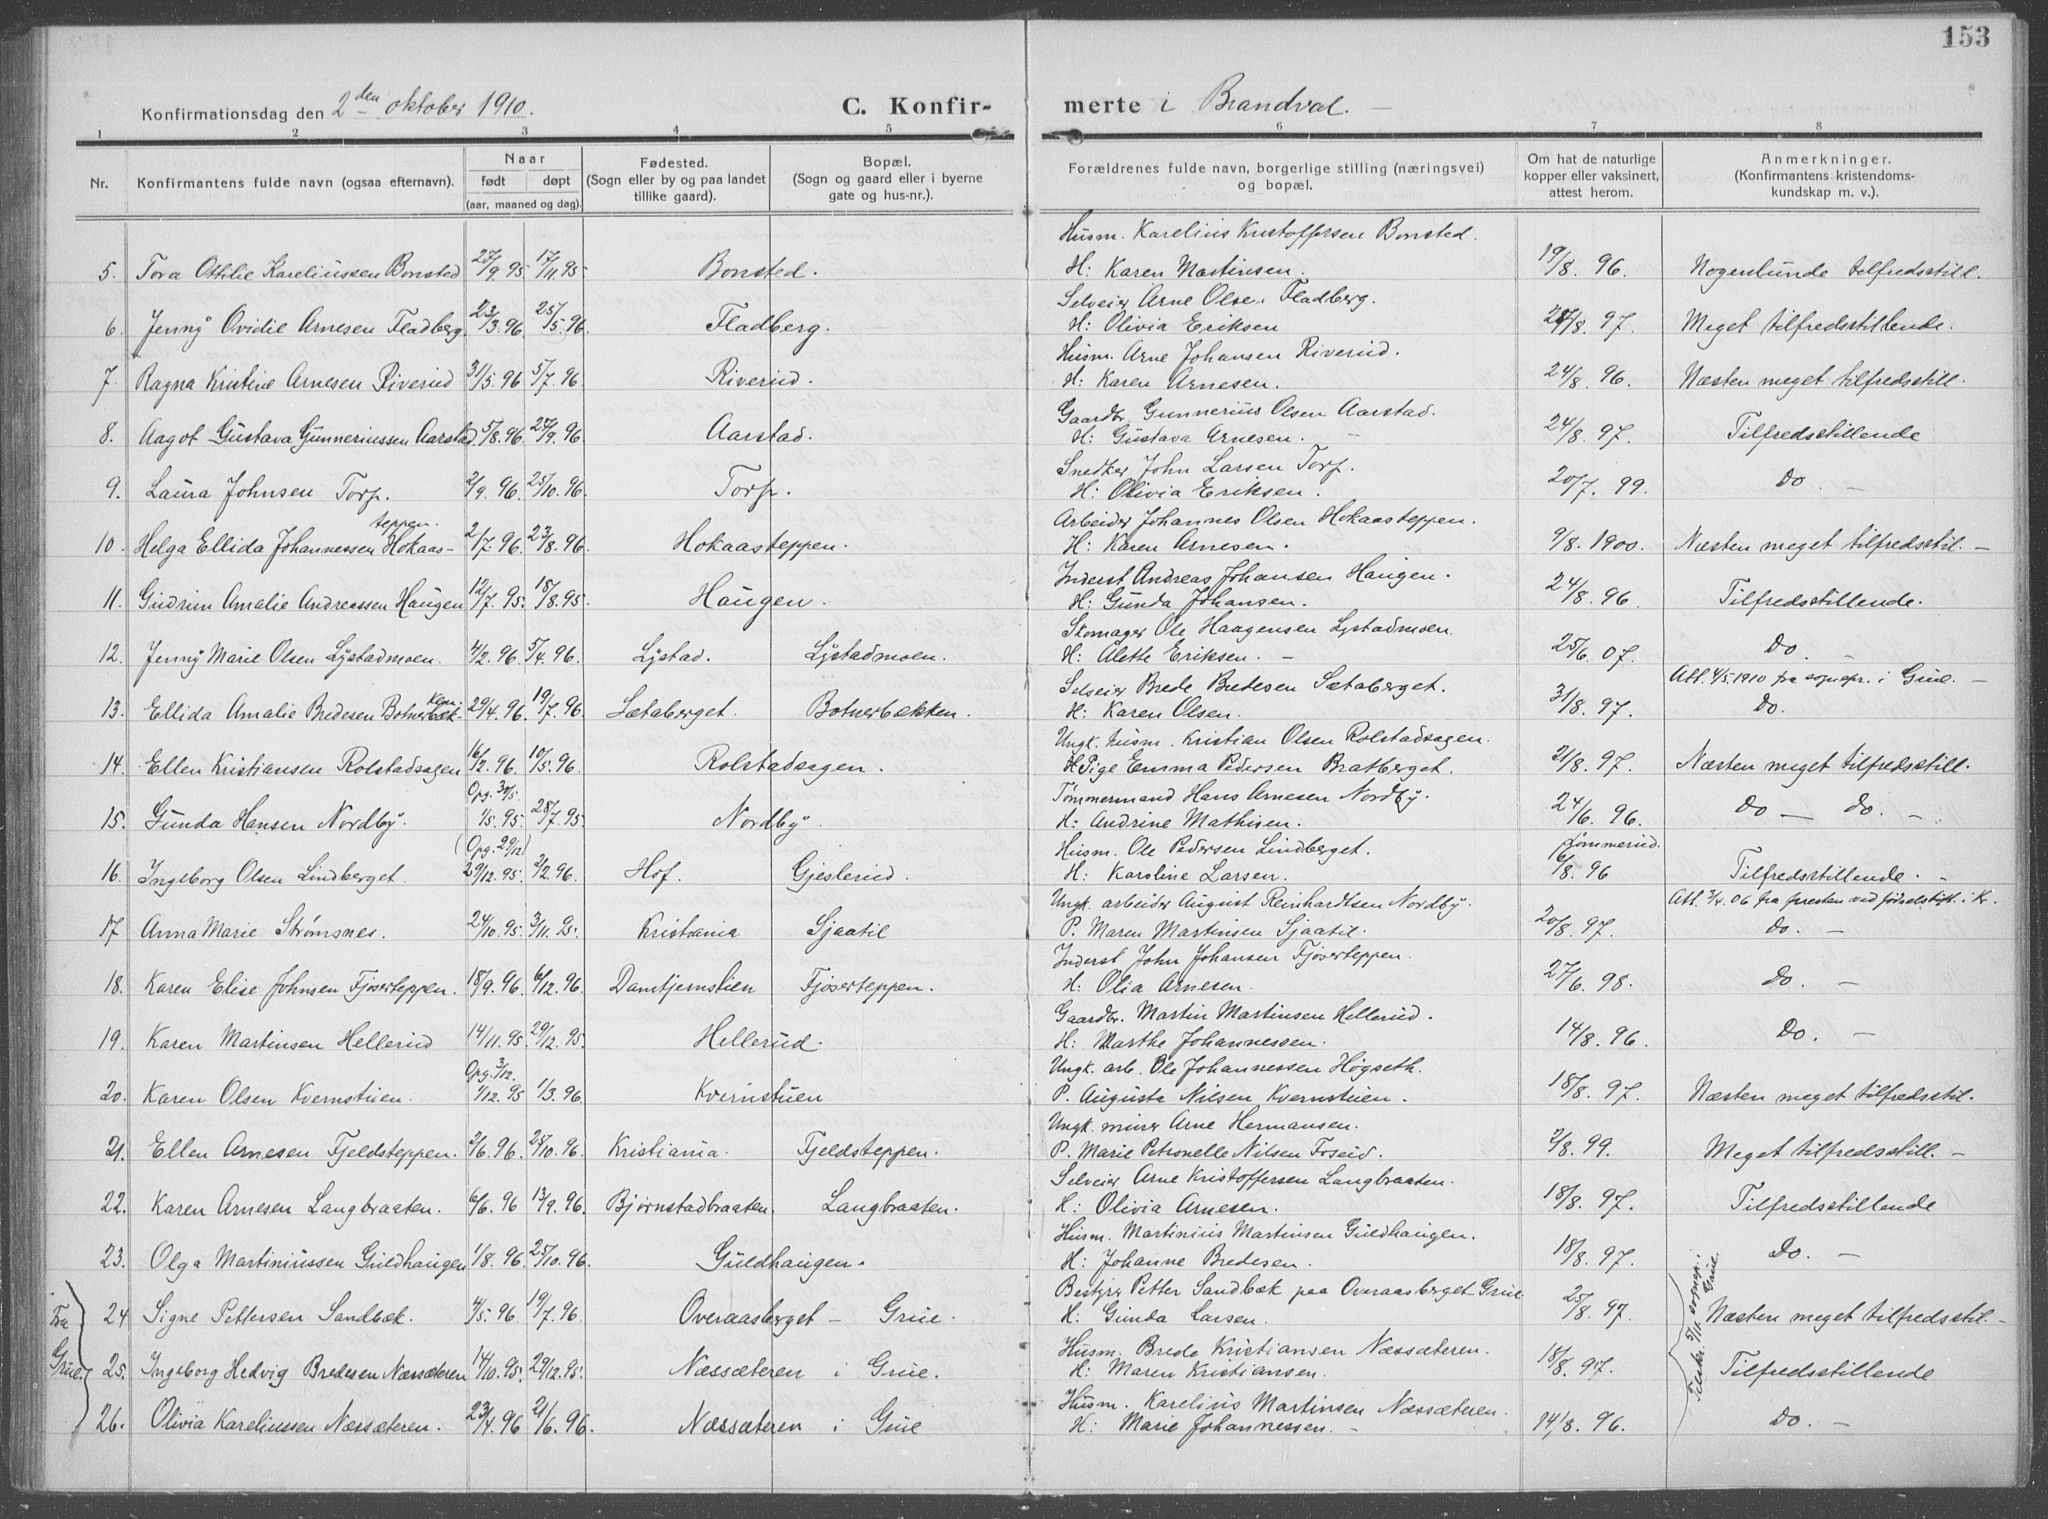 153
Konfirmationsdag den 2den oktober 1910. C. Konfirmerte i Brandval. —
1 2 3 4 5 6 7 8
Nr. Konfirmantens fulde navn (ogsaa efternavn). Naar født døpt (aar, maaned og dag). Fødested. (Sogn eller by og paa landet tillike gaard). Bopæl. (Sogn og gaard eller i byerne gate og hus-nr.). Forældrenes fulde navn, borgerlige stilling (næringsvei) og bopæl. Om hat de naturlige kopper eller vaksinert, attest herom. Anmerkninger. (Konfirmantens kristendomskundskap m. v.).
Husm. Karelius Kristoffersen Bonsted.
5. Tora Ottilie Kareliussen Bonsted 27/9. 95. 17/11. 95. Bonsted. H: Karen Martinsen. 19/8. 96. Nogenlunde tilfredsstill.
Selveier Arne Olsen Fladberg.
6. Jenny Ovidie Arnesen Fladberg. 23/3. 96. 25/5. 96. Fladberg. H: Olivia Eriksen 24/8. 97. Meget tilfredsstillende.
Husm. Arne Johansen Riverud.
7. Ragna Kristine Arnesen Riverud 31/5. 96 5/7. 96. Riverud. H: Karen Arnesen. 24/8. 96. Næsten meget tilfredsstill.
Gaardbr. Gunnerius Olsen Aarstad.
8. Aagot Gustava Gunneriussen Aarstad 5/8. 96. 27/9. 96 Aarstad. H: Gustava Arnesen. — 24/8. 97. Tilfredsstillende
Snedker John Larsen Torp.
9. Laura Johnsen Torp. 2/9. 96. 25/10. 96. Torp. H: Olivia Eriksen. 20/7. 99. Do. —
teppen. Arbeider Johannes Olsen Hokaasteppen.
10. Helga Ellida Johannessen Hokaas- 2/7. 96. 23/8. 96. Hokaasteppen. H: Karen Arnesen. 9/8. 1900. Næsten meget tilfredsstil. —
Inderst Andreas Johansen Haugen.
11. Gudrun Amalie Andreassen Haugen 12/7. 95. 18/8. 95. Haugen. H: Gunda Johansen. 24/8. 96. Tilfredsstillende.
Skomager Ole Haagensen Lystadmoen.
12. Jenny Marie Olsen Lystadmoen. 4/2. 96. 5/4. 96. Lystad. Lystadmoen. H: Alette Eriksen. — 25/6. 07. Do. —
ken. Selveier Brede Bredesen Sætaberget. Att. 4/5. 1910 fra sognepr. i Grue. —
13. Ellida Amalie Bredesen Botnerbæk- 29/4. 96. 19/7. 96. Sætaberget. Botnerbækken. H: Karen Olsen. 31/8. 97. Do.
Ungk. husm. Kristian Olsen Rolstadsagen.
14. Ellen Kristiansen Rolstadsagen 16/2. 96. 10/5. 96. Rolstadsagen. Pige Emma Pedersen Bratberget. 21/8. 97. Næsten meget tilfredsstill.
Opg. 30/5. Tømmermand Hans Arnesen Nordby.
15. Gunda Hansen Nordby. 1/5. 95. 28/7. 95. Nordby. H: Andrine Mathisen. 24/6. 96. Do — Do. —
(Opg. 29/12) Husm. Ole Pedersen Lindberget. Jømmerud.
16. Ingeborg Olsen Lindberget. 29/12. 95. 2/2. 96. Hof. Gjeslerud. H: Karoline Larsen. 6/8. 96 Tilfredsstillende.
Ungk. arbeider August Reinhardtsen Nordby. Att. 3/4. 06 fra presten ved fødselsstift. i K.
17 Anna Marie Strømsnes. 24/10. 95. 3/11. 95. Kristiania Sjaatil P. Maren Martinsen Sjaatil. 20/8. 97. Do. —
Inderst John Johansen Fjøserteppen.
18. Karen Elise Johnsen Fjøserteppen. 18/9. 96. 6/12. 96. Damtjernslien Fjøserteppen. H: Olia Arnesen. 27/6. 98. Do. —
Gaardbr. Martin Martinsen Hellerud.
19. Karen Martinsen Hellerud 14/11. 95. 29/12. 95. Hellerud. H: Marthe Johannessen. 14/8. 96. Do. —
Opg. 3/12. Ungk. arb. Ole Johannessen Høgseth.
20. Karen Olsen Kvernstuen. 1/12. 95 1/3. 96. Kvernstuen P. Augusta Nilsen Kvernstuen. 18/8. 97. Næsten meget tilfredsstil.
Ungk. murer Arne Hermansen.
21. Ellen Arnesen Fjeldsteppen. 2/6. 96. 25/10. 96. Kristiania. Fjeldsteppen. P. Marie Petronelle Nilsen Foseid. 2/8. 99. Meget tilfredsstill. —
Selveier Arne Kristoffersen Langbraaten.
22. Karen Arnesen Langbraaten. 6/6. 96 13/9. 96. Bjørnstadbraaten. Langbraaten. H: Olivia Arnesen. 18/8. 97. Tilfredsstillende
Husm. Martinius Martinsen Guldhaugen.
23. Olga Martiniussen Guldhaugen 1/8. 96. 25/10. 96. Guldhaugen. H: Johanne Bredesen. 18/8. 97. Do. —
Bestyrer Petter Sandbæk paa Overaasberget Grue
Fra Grue.
24 Signe Pettersen Sandbæk. 4/5. 96. 19/7. 96. Overaasberget — Grue. H: Gunda Larsen. 25/8. 97. Næsten meget tilfredsstil. —
Husm. Brede Kristiansen Næssæteren.
25. Ingeborg Hedvig Bredesen Næssæteren 14/10. 95. 29/12. 95. Næssæteren i Grue. H: Maren Kristiansen. 18/8. 97. Tilfredsstillende
Husm. Karelius Martinsen Næssæteren.
26. Olivia Kareliussen Næssæteren. 23/4. 96 21/6. 96. Næssæteren i Grue H: Marie Johannessen. — 14/8. 96. Do. —
sognepr. Grue.